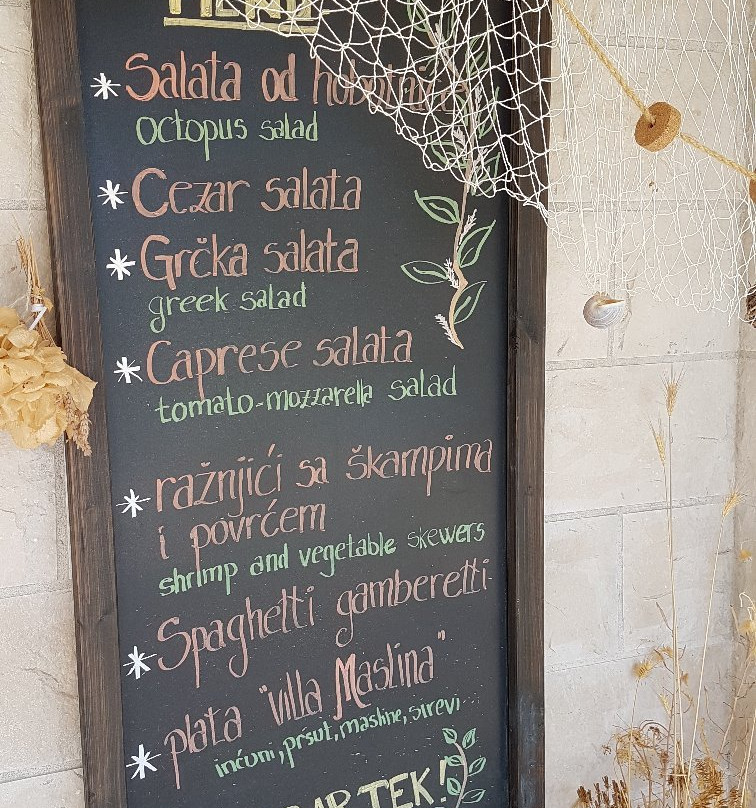 * Salata od hobotnice
octopus salad
* Cezar salata
* Grčka salata
greek salad
* Caprese salata
tomato-mozzarella salad
* ražnjići sa škampima
i povrćem
shrimp and vegetable skewers
* Spaghetti gamberetti
* plata "villa Maslina"
inćuni, pršut, masline, sirevi...
TEK!